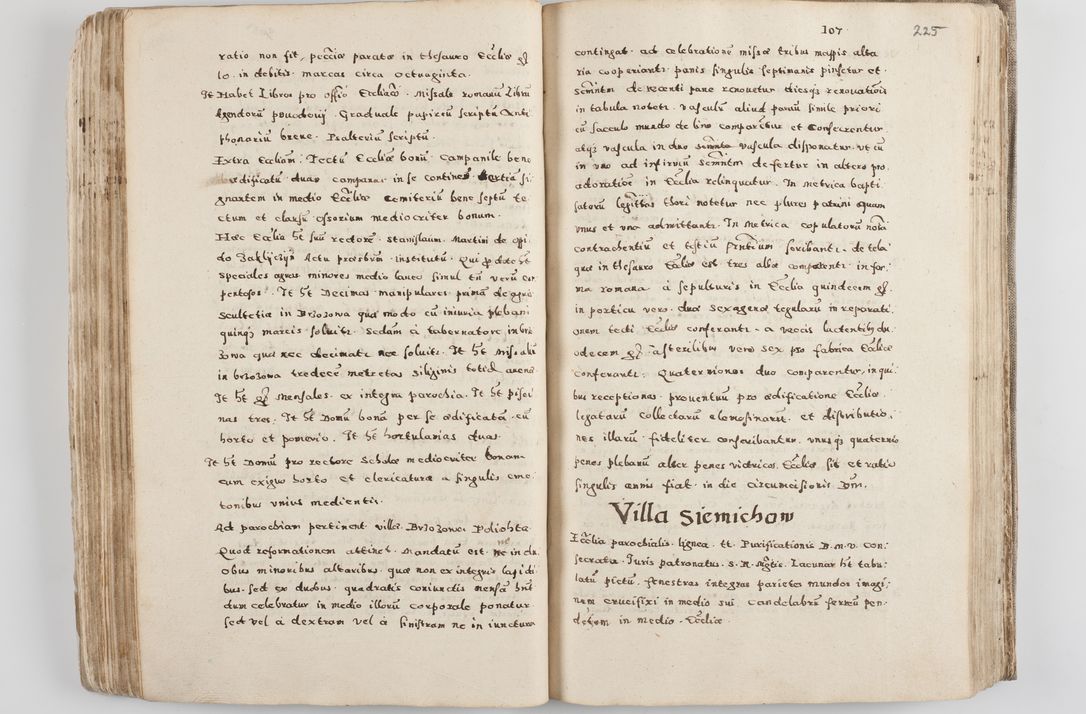 ratio non fit, pecciæ paratæ in thesauro Eccliæ
lo. in debitis marcas circa octuaginta.
It Habet Libros pro offo Eccliaco. Missale romanū Librū
Agendorū Graduale papireū scriptū Anti
phonariū breve. Psalteriū scriptū.
Extra Eccliam. Tectū Eccliæ bonū campanile bene
ædificatū duas campanas in se continet tertia si,
gnartem in medio Eccliæ Cemiteriū bene septū te,
ctum et clausū ossorium mediocriter bonum.
Hæc Ecclia ht suū rectorē Stanislaum Martini de opi,
do Zakliczijn Actu præsbrm institutū. Qui dote ht
speciales agros minores medio laneo simul tn verū
It ht Decimas manipulares primā de agris
scultetiæ in Brzozowa quæ modo cū iniuria plebani
quinq marcis soluitr. Sedam à tabernatore in brzo
zowa quæ nec decimatr nec soluitr. It ht missaliū
in brzozowa tredecē metretas siliginis totid avenæ
It ht mensales ex integra parochia. It ht pisci,
nas tres. It ht Domū bonā per se ædificatā cū
horto et pomerio. It ht hortulanias duas.
It ht Domū pro rectore Scholæ mediocriter bonam
cum exiguo horto et clericatura à singulis cme,
tonibus unius medientis.
Ad parochiam pertinent villæ Brzozowa Polichta.
Quod reformationem attinet. Mandatū est ne in du,
obus minoribus altaribus quæ non ex integris lapidi,
bus sed ex duobus quadratis coniunctis mensā hnt
dum celebratur in medio illorū corporale ponatur
sed vel à dextram vel à sinistram ne in iunctura
107
225
contingat ad celebrationē missæ tribus mappis alta
ria cooperiantr panis singulis septimanis pinsetur et
semntm de recenti pane renovetur diesq renovationis
in tabula notetr. vasculū aliud parvū simile priori
cū sacculo mundo de bino comparetur et Consecrentur
atq vascula in duo vascula disponatur ut cū
in uno ad infirmū semntm defertur in altero pro
adoratiōe in Ecclia relinquatur. In metrica bapti
satorū legittimi thori notetur nec plures patrini quam
unus et una admittantr. In metrica copulatorū noīa
contrachentiū et testiū pntium scribantr. de tela
quæ in thesauro Eccliæ est tres albæ comparentr in for,
ma romana à sepulturis in Ecclia quindecem
in porticu vero duæ sexagenæ tegularū in reparati,
onem tecti Eccliæ conferantr. a vacis lactentib du,
odecem à sterilibus vero sex pro fabrica Eccliæ
conferantr. Quaterniones duo comparentur, in qui,
bus receptiones proventuū pro ædificatione Eccliæ
legatarū collectarū elemosinarū et distributio,
nes illarū fideliter conscribantur. unus q quaternio
penes plebanū alter penes vitricos Eccliæ sit et ratio
singulis annis fiat in die Circumcisionis Dni.
Villa Siemichow
Ecclia parochialis lignea tt. Purificationis B. M. V. Con,
secrata. Juris patronatus S. R. Mgtis. Lacunar ht tabu,
latū pictū. fenestras integras parietes mundos imagi,
nem crucifixi in medio sui candelabrū ferreū pen,
dctem in medio Eccliæ